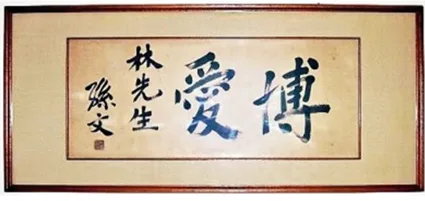 博愛
林先生
孫文